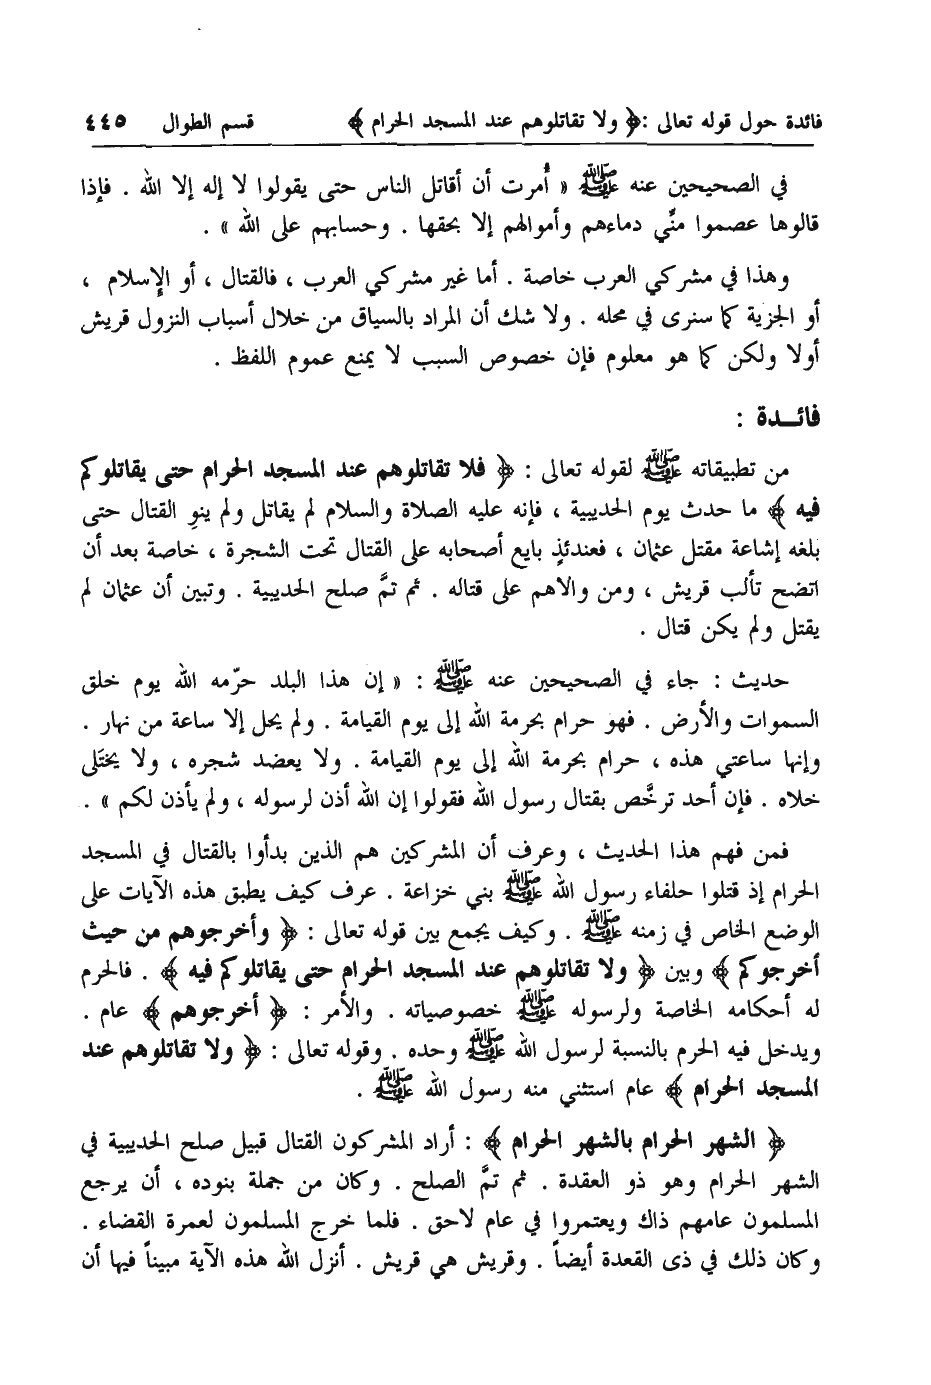 فائدة حول قوله تعالى :﴿ ولا تقاتلوهم عند المسجد الحرام ﴾ قسم الطوال ٤٤٥
في الصحيحين عنه ﷺ « أُمرت أن أقاتل الناس حتى يقولوا لا إله إلا الله . فإذا
قالوها عصموا منّي دماءهم وأموالهم إلا بحقها . وحسابهم على الله » .
وهذا في مشركي العرب خاصة . أما غير مشركي العرب ، فالقتال ، أو الإسلام ،
أو الجزية كما سنرى في محله . ولا شك أن المراد بالسياق من خلال أسباب النزول قريش
أولا ولكن كما هو معلوم فإن خصوص السبب لا يمنع عموم اللفظ .
فائـدة :
من تطبيقاته ﷺ لقوله تعالى : ﴿ فلا تقاتلوهم عند المسجد الحرام حتى يقاتلوكم
فيه ﴾ ما حدث يوم الحديبية ، فإنه عليه الصلاة والسلام لم يقاتل ولم ينوِ القتال حتى
بلغه إشاعة مقتل عثمان ، فعندئذٍ بايع أصحابه على القتال تحت الشجرة ، خاصة بعد أن
اتضح تألب قريش ، ومن والاهم على قتاله . ثم تمَّ صلح الحديبية . وتبين أن عثمان لم
يقتل ولم يكن قتال .
حديث : جاء في الصحيحين عنه ﷺ : « إن هذا البلد حرّمه الله يوم خلق
السموات والأرض . فهو حرام بحرمة الله إلى يوم القيامة . ولم يحل إلا ساعة من نهار .
وإنها ساعتي هذه ، حرام بحرمة الله إلى يوم القيامة . ولا يعضد شجره ، ولا يختَلى
خلاه . فإن أحد ترخَّص بقتال رسول الله فقولوا إن الله أذن لرسوله ، ولم يأذن لكم » .
فمن فهم هذا الحديث ، وعرف أن المشركين هم الذين بدأوا بالقتال في المسجد
الحرام إذ قتلوا حلفاء رسول الله ﷺ بني خزاعة . عرف كيف يطبق هذه الآيات على
الوضع الخاص في زمنه ﷺ . وكيف يجمع بين قوله تعالى : ﴿ وأخرجوهم من حيث
أخرجوكم ﴾ وبين ﴿ ولا تقاتلوهم عند المسجد الحرام حتى يقاتلوكم فيه ﴾ . فالحرم
له أحكامه الخاصة ولرسوله ﷺ خصوصياته . والأمر : ﴿ أخرجوهم ﴾ عام .
ويدخل فيه الحرم بالنسبة لرسول الله ﷺ وحده . وقوله تعالى : ﴿ ولا تقاتلوهم عند
المسجد الحرام ﴾ عام استثني منه رسول الله ﷺ .
﴿ الشهر الحرام بالشهر الحرام ﴾ : أراد المشركون القتال قبيل صلح الحديبية في
الشهر الحرام وهو ذو العقدة . ثم تمَّ الصلح . وكان من جملة بنوده ، أن يرجع
المسلمون عامهم ذاك ويعتمروا في عام لاحق . فلما خرج المسلمون لعمرة القضاء .
وكان ذلك في ذى القعدة أيضاً . وقريش هي قريش . أنزل الله هذه الآية مبيناً فيها أن